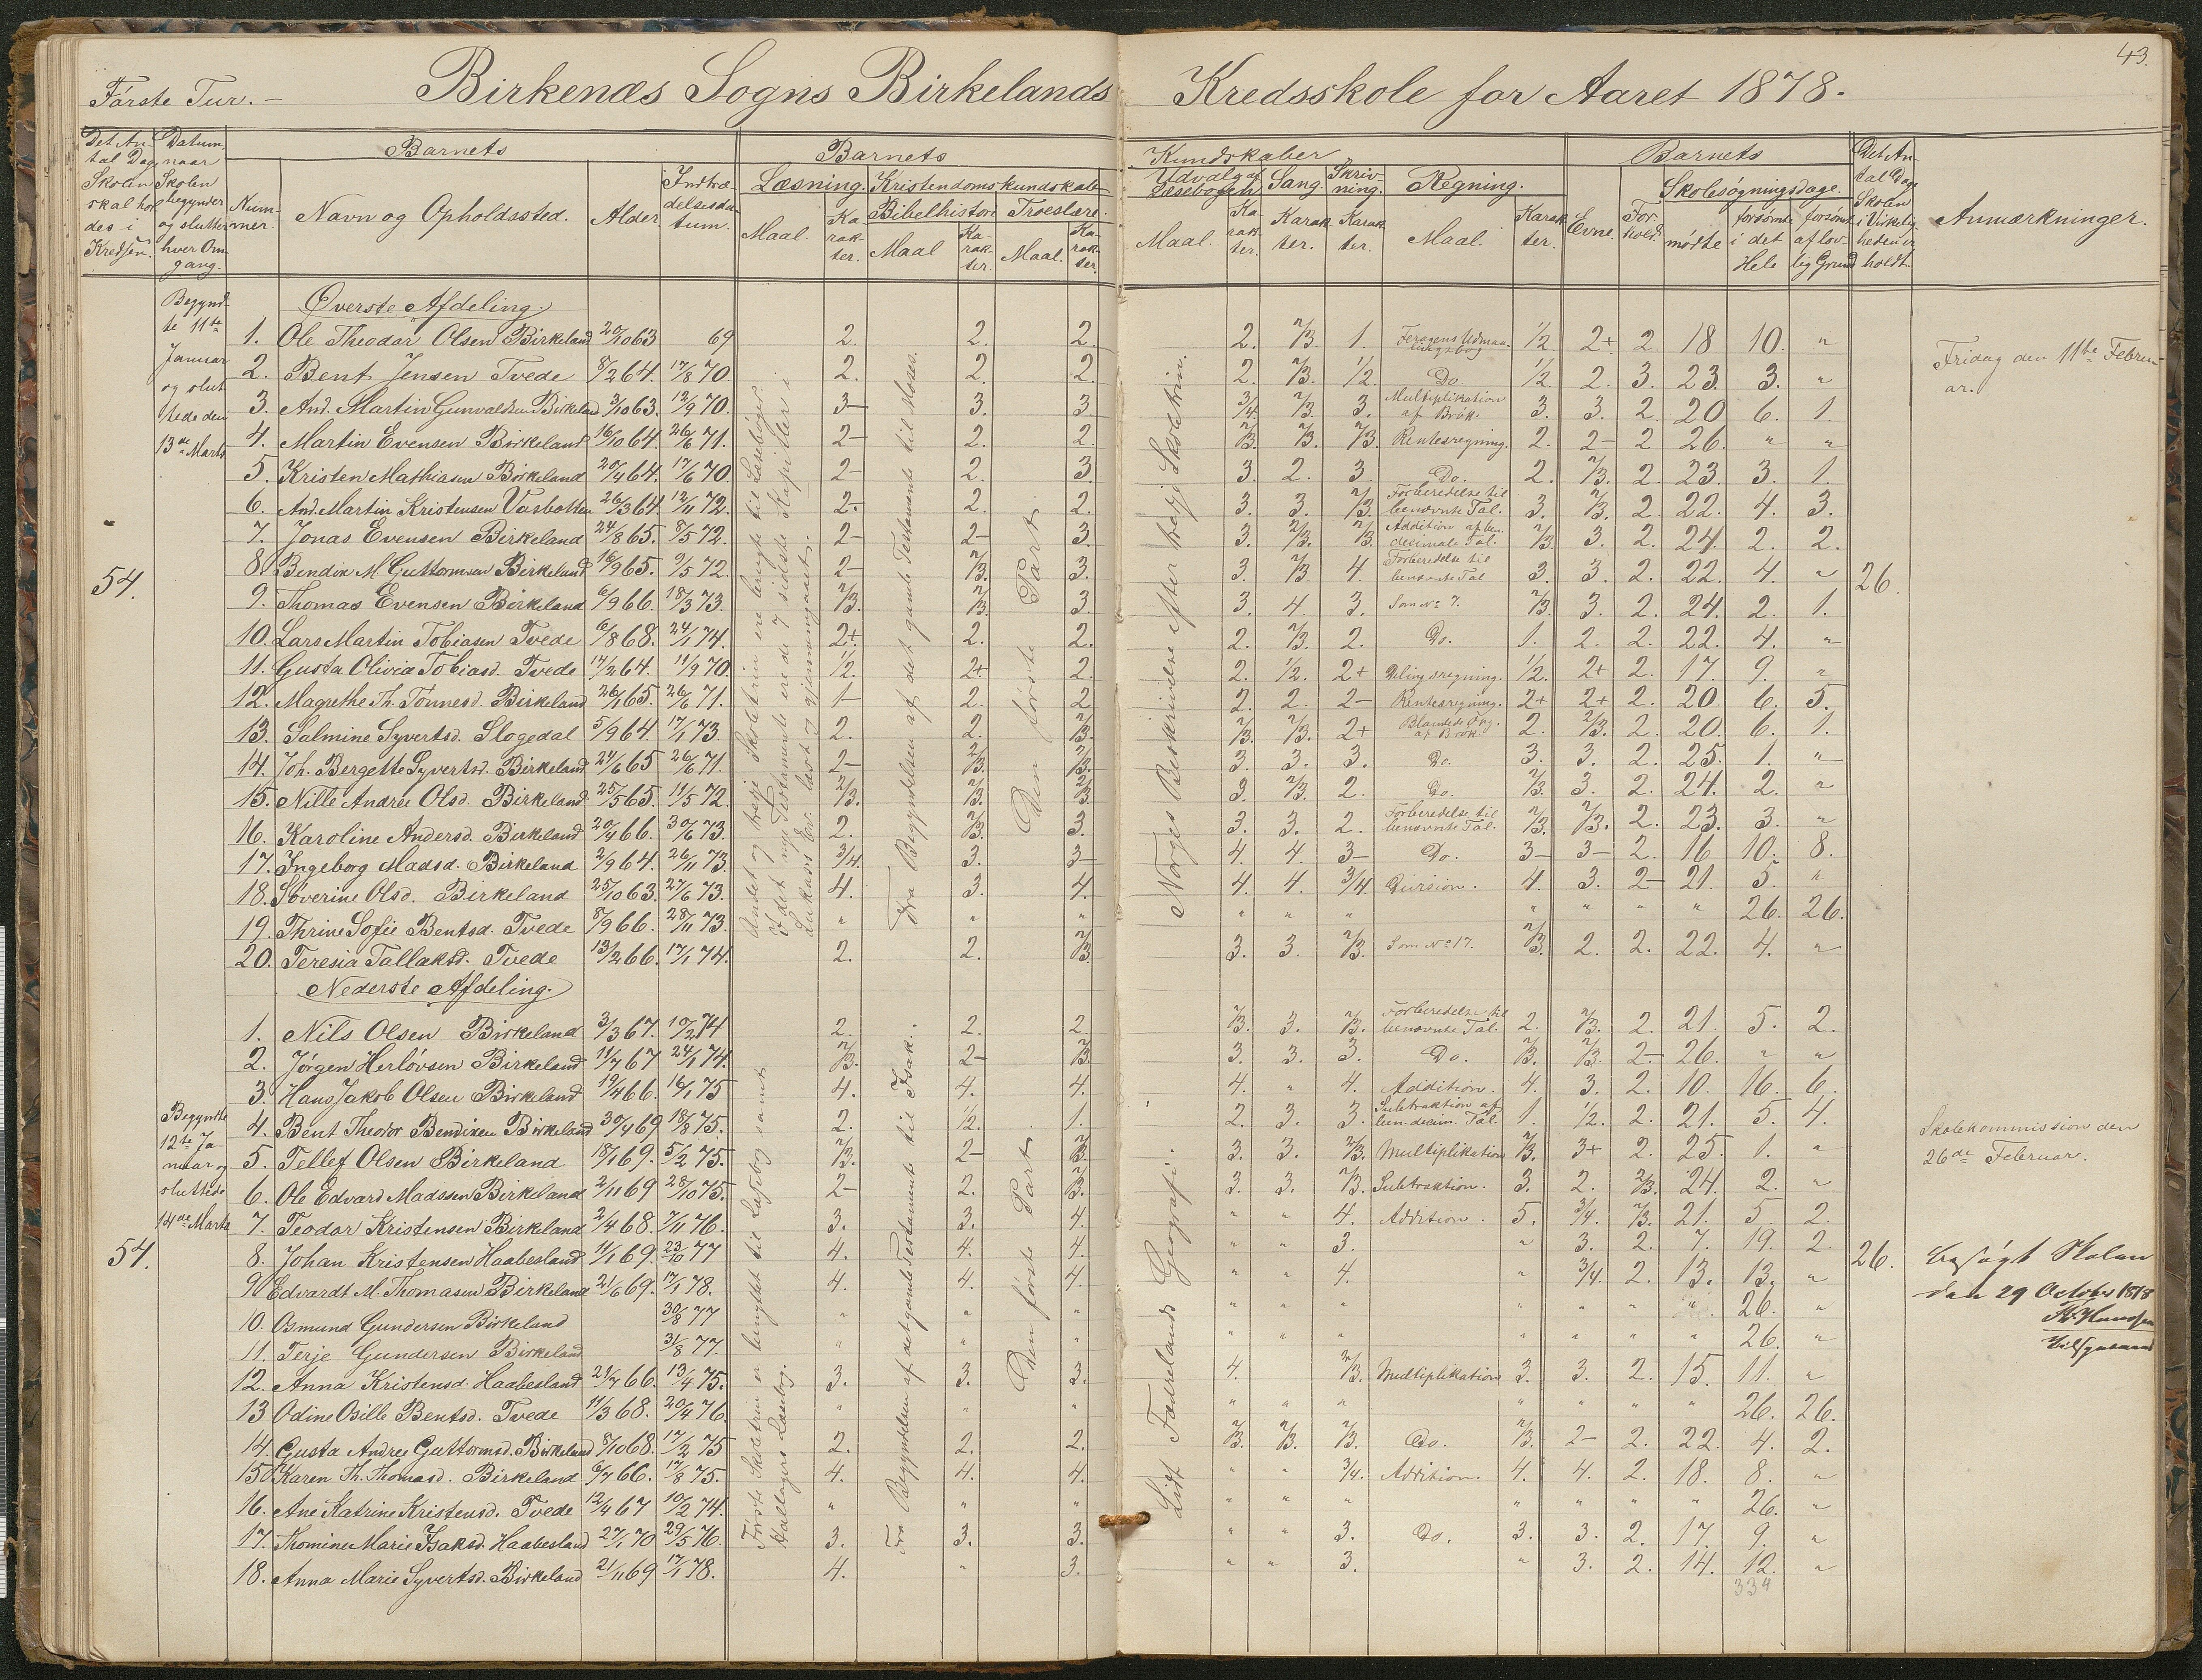 43.
Første Tur. –
Birkenæs Sogns Birkelands Kredsskole for Aaret 1878.
Det An-
tal Dage
Skolen
skal hol
des i
Kredsen.
Datum,
naar
Skolen
begynder
og slutter
hver Om-
gang.
Num-
mer
Barnets
Navn og Opholdssted.
Alder
Indtræ-
delsesda-
tum.
Barnets
Læsning.
Maal.
Ka-
rak-
ter.
Kristendomskundskab
Bibelhistori
Maal
Ka-
rak-
ter.
Troeslære.
Maal.
Ka-
rak-
ter.
Kundskaber
Udvalg af
Læsebogen
Maal.
Ka
rak-
ter.
Sang.
Karak
ter.
Skriv-
ning.
Karak
ter.
Regning.
Maal.
Karak
ter.
Barnets
Evne.
For-
hold.
Skolesøgningsdage.
mødte
forsømte
i det
Hele
forsømt
af lov-
lig Grund
Det An-
tal Dage
Skolen
i Virkelig-
heden er
holdt.
Anmærkninger.
Begynd-
te 11te
Januar
og slut
tede den
13de Marts
54.
26.
Øverste Afdeling.
1. Ole Theodor Olsen Birkeland 20/10 63 69 2. 2. 2. 2. 2/3. 1. 1/2 2+ 2. 18 10. "
2. Bent Jensen Tvede 8/2 64. 17/8 70. 2. 2. 2. 2. 2/3. 1/2. Do. 1/2 2. 3. 23. 3. "
3. And. Martin Gunvaldsen Birkeland 3/10 63. 12/9 70. 3– 3. 3. 3/4. 2/3. 3. Multiplikation af Brøk. 3. 3. 2. 20 6. 1.
4. Martin Evensen Birkeland 16/10 64. 26/6 71. 2– 2. 2. 2/3. 2/3. 2/3. Rentesregning. 2. 2– 2 26. " "
5. Kristen Mathiasen Birkeland 20/4 64. 17/6 70. 2– 2. 3. 3. 2. 3 Do. 2. 2/3. 2. 23. 3. 1.
6. And. Martin Kristensen Vasbotten 26/3 64. 12/11 72. 2– 2. 2. 3. 3. 2/3. Forberedelse til benævnte Tal. 3. 2/3. 2. 22. 4. 3.
7. Jonas Evensen Birkeland 24/8 65. 8/5 72. 2– 2– 3. 3. 2/3. 2/3. Addition af ben. decimale Tal. 2/3. 3. 2. 24. 2. 2.
8. Bendix M Guttormsen Birkeland 16/9 65. 9/5 72. 2– 2/3. 3. 3. 2/3 4. Forberedelse til benævnte Tal 3. 3. 2. 22. 4. "
9. Thomas Evensen Birkeland 6/9 66. 18/3 73. 2/3. 2/3. 3. 3. 4. 3. Som No 7. 2/3. 3. 2. 24. 2. 1.
10. Lars Martin Tobiasen Tvede 6/8 68. 24/1 74. 2+ 2. 2. 2. 2/3. 2. Do. 1. 2. 2. 22. 4. "
11. Gusta Olivia Tobiasd. Tvede 17/2 64. 11/9 70. 1/2. 2+ 2. 2. 1/2. 2+ Delingsregning. 1/2. 2+ 2. 17. 9. "
12. Magrethe Th. Tønnesd. Birkeland 26/1 65. 26/6 71. 1– 2. 2. 2. 2. 2– Rentesregning. 2+ 2+ 2. 20. 6. 5.
13. Salmine Syvertsd. Slogedal 5/9 64. 17/1 73. 2. 2. 2/3. 2/3. 2/3. 2+ 2. 2/3. 2. 20. 6. 1.
14. Joh. Bergette Syvertsd. Birkeland 24/6 65 26/6 71. 2– 2/3. 2/3. 3. 3. 3. Do. 3. 3. 2. 25. 1. "
15. Nille Andrea Olsd. Birkeland 25/5 65. 11/5 72. 2/3. 2/3. 2/3. 3. 2/3. 2. Do. 2/3. 3. 2. 24. 2. "
16. Karoline Andersd. Birkeland 20/4 66. 30/6 73. 2. 2/3. 3. 3. 3. 2. Forberedelse til benævnte Tal. 2/3. 2/3. 2. 23. 3. "
17. Ingeborg Madsd. Birkeland 2/9 64. 26/11 73. 3/4. 3. 3– 4. 4. 3– Do. 3– 3– 2. 16 10. 8.
18. Søverine Olsd. Birkeland 25/10 63. 27/6 73. 4. 3. 4. 4. 4. 3/4. Division. 4. 3. 2– 21. 5. "
19. Thrine Sofie Bentsd. Tvede 8/9 66. 28/11 73. " " " " " " " " " " 26. 26.
20. Teresia Tallaksd. Tvede 13/2 66. 17/1 74. 2. 2. 2/3. 3. 3. 2/3. Som No 17. 2/3. 2. 2. 22. 4. "
Andet og tredje Skoletrin ere brugte til Læsebøger.
I det nye Testamente ere de 7 sidste Kapitler i
Lukas's Ev. læst og gjennemgaaet.
Fra Begyndelsen af det gamle Testamente til Moses.
Den første Part.
Norges Beskrivelse efter tredje Skoletrin.
Fridag den 11te Febru-
ar.
Nederste Afdeling.
Begyndte
12te Ja-
nuar og
sluttede
14de Marts
54.
26.
1. Nils Olsen Birkeland 3/3 67. 10/2 74 2. 2. 2. 2/3. 3. 2/3. Forberedelse til benævnte Tal. 2. 2/3. 2. 21. 5. 2.
2. Jørgen Herløvsen Birkeland 11/7 67 24/1 74. 2/3. 2– 2/3. 3. 3. 3. Do. 2/3. 2/3. 2– 26. " "
3. Hans Jakob Olsen Birkeland 19/4 66. 16/1 75 4. 4. 4. 4. " 4. Addition. 4. 3. 2. 10. 16. 6.
4. Bent Theodor Bendixen Birkeland 30/4 69 18/8 75. 2. 1/2. 1. 2. 3. 3. Subtraktion af ben. decim. Tal. 1. 1/2. 2. 21. 5. 4.
5. Tellef Olsen Birkeland 18/1 69. 5/2 75. 2/3. 2– 2/3. 3. 3. 2/3. Multiplikation 2/3. 3+ 2. 25. 1. "
6. Ole Edvard Madssen Birkeland 2/11 69 28/10 75. 2– 2. 2/3. 3. 3. 2/3. Subtraktion. 3. 2. 2/3. 24. 2. "
7. Teodor Kristensen Birkeland 2/4 68. 7/11 76. 3. 3. 4. " " 4. Addition. 5. 3/4. 2/3. 21. 5 2.
8. Johan Kristensen Haabesland 11/1 69. 23/10 77 4. 4. 4. " " 3. " 3. 2. 7. 19. 2.
9. Edvardt M. Thomasen Birkeland 21/6 69. 17/1 78. 4. 4. 4. " " 4. " 3/4. 2. 13. 13. "
10. Osmund Gundersen Birkeland 30/8 77 " " " " " " " " " " 26. "
11. Terje Gundersen Birkeland 31/8 77. " " " " " " " " " " 26. "
12. Anna Kristensd. Haabesland 21/7 66. 13/4 75. 3. 3. 3. 4. 2/3. Multiplikation 3. 3. 2. 15. 11. "
13 Odine Osille Bentsd. Tvede 11/3 68. 20/4 76. " " " " " " " " " " 26. 26.
14. Gusta Andrea Guttormsd. Birkeland 8/10 68. 17/2 75 2. 2. 2. 2/3. 2/3. 2/3. Do. 2/3. 2– 2. 22. 4. 2.
15. Karen Th. Thomasd. Birkeland 6/7 66. 17/8 75. 4. 4. 4. " " 3/4. Addition. 4. 4. 2. 18. 8. "
16. Ane Katrine Kristensd. Tvede 12/4 67 10/2 74. " " " " " " " " " " 26. "
17. Thomine Marie Isaksd. Haabesland 27/1 70 29/5 76. 3. 3. 3. " " 3. Do. 3. 3. 2. 17. 9. "
18. Anna Marie Syvertsd. Birkeland 21/11 69 17/1 78. 4. " 3. " " 3. " 3. 2. 14. 12. "
334
Første Skoletrin er benyttet til Læsebog samt
Hallagers Læsebog.
Fra Begyndelsen af det gamle Testamente til Isak.
Den første Part.
Lidt Fædrelands Geografi.
Skolekommission den
26de Februar.
besøgt Skolen
den 29 October 1878